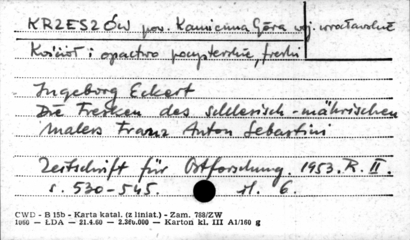 KRZESZÓW pow. Kamienna Góra woj. wrocławskie
Kościół i opactwo pocysterskie, freski
Ingeborg Eckert
Die Fresken des schlesisch-mährischen
Malers Franz Anton Sebastini
Zeitschrift für Ostforschung. 1953. R. II.
s. 530-545. H. 6.
CWD - B 15b - Karta katal. (z liniat.) - Zam. 788/ZW
1060 — LDA — 21.4.60 - 2.360.000 — Karton kl. III A1/160 g